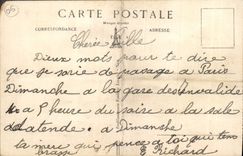 CARTE POSTALE
CORRESPONDANCE
ADRESSE
Chère Fille
Deux mots pour te dire
que je serie de pasage a Paris
Dimanche a la gare des Invalide
a 5 heure du soire a la sale
datende. a Dimanche
ta mere qui pence a toi qui tem
brasse
E Richard